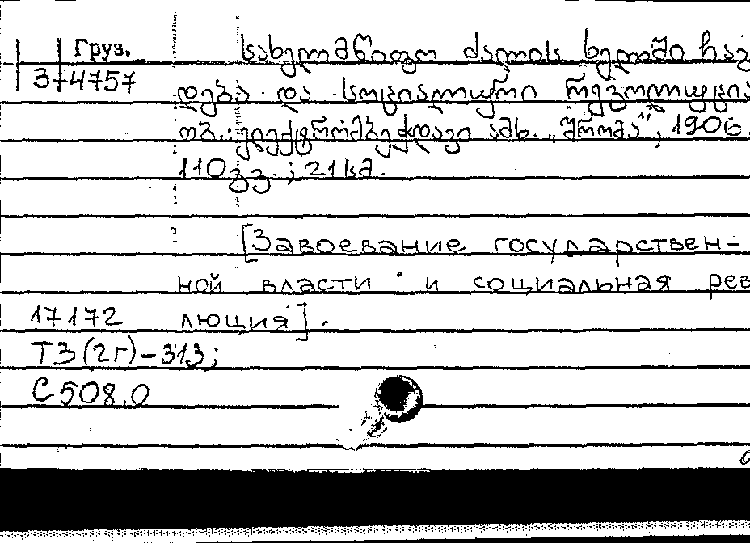 Груз.
3-4757
სახელმწიფო ძალის ხელში ჩაგ
დება და სოციალური რევოლუცია
თბ. ელექტრომბეჭდავი ამხ. „შრომა“, 1906
110 გვ.; 21 სმ.
[Завоевание государствен-
ной власти и социальная рев
17172 люция].
Т3(2г)-313;
С508.0